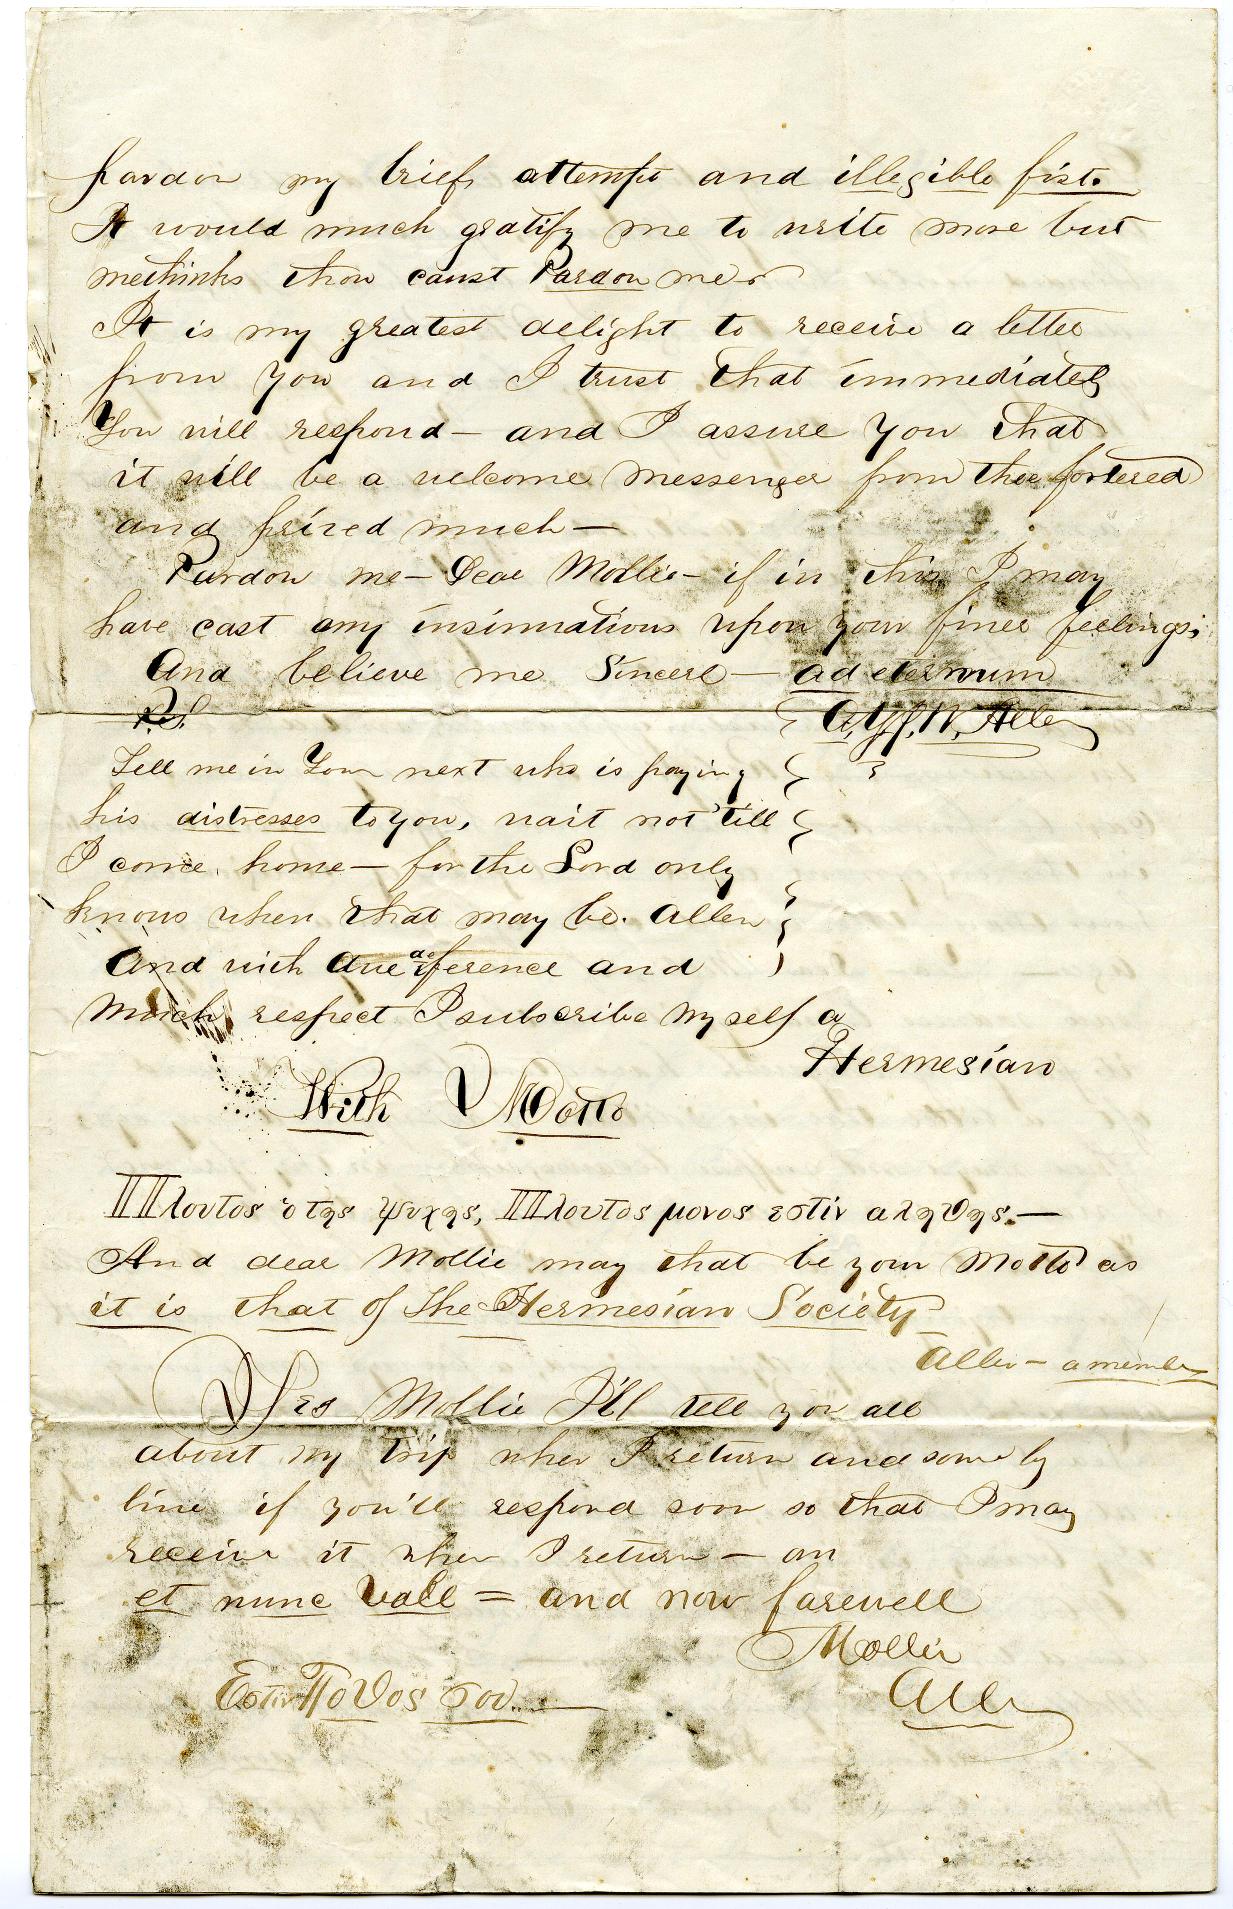 pardon my brief attempt and illegible fist.
It would much gratify me to write more but
methinks thou canst Pardon me
It is my greatest delight to receive a letter
from you and I trust that immediately
You will respond — and I assure you that
it will be a welcome messenger from thee
and prized much —
Pardon me — Dear Mollie — if in this I may
have cast any insinuations upon your finer feelings;
And believe me Sincere — ad eternum
P.S. Allen
Tell me in Your next who is paying
his distresses to you, wait not 'till
I come home — for the Lord only
knows when that may be. Allen
And with due deference and
much respect I subscribe myself a
Hermesian
With Motto
Πλουτος ὁ της ψυχης, Πλουτος μονος εστιν αληθης. —
And dear Mollie may that be your Motto as
it is that of the Hermesian Society
Allen — a member
Yes Mollie I'll tell you all
about my trip when I return and some by
line if you'll respond soon so that I may
receive it when I return — on
et nunc Vale = and now farewell
Mollie
Εστιν Ποθος σου Allen